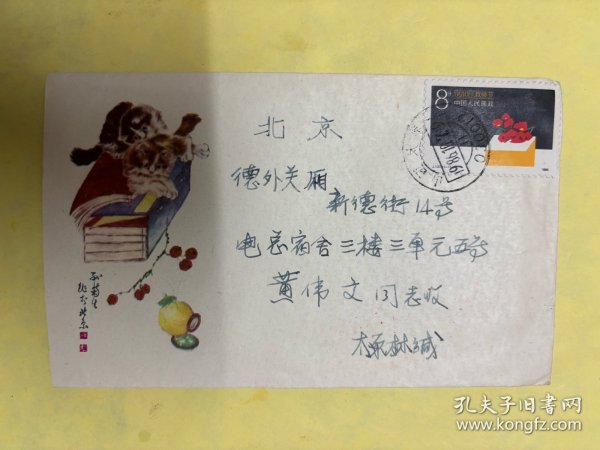 8分
中国人民邮政
北京
德外关厢
新德街14号
电总宿舍三楼三单元五号
黄伟文同志收
林缄
孙菊生
北京
孔夫子旧书网
www.kongfz.com